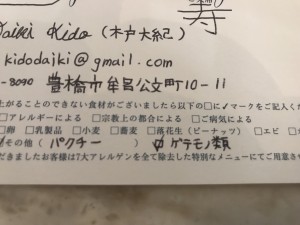 寿
Daiki Kido (木戸大紀)
kidodaiki@gmail.com
-8090 豊橋市牟呂公文町10-11
上がることのできない食材がございましたら以下の□に✓マークをご記入くだ
アレルギーによる □ 宗教上の都合による □ ご病気による
□卵 □乳製品 □小麦 □蕎麦 □落花生（ピーナッツ） □エビ
その他（パクチー） ☑ゲテモノ類
だきましたお客様は7大アレルゲンを全て除去した特別なメニューにてご用意させ